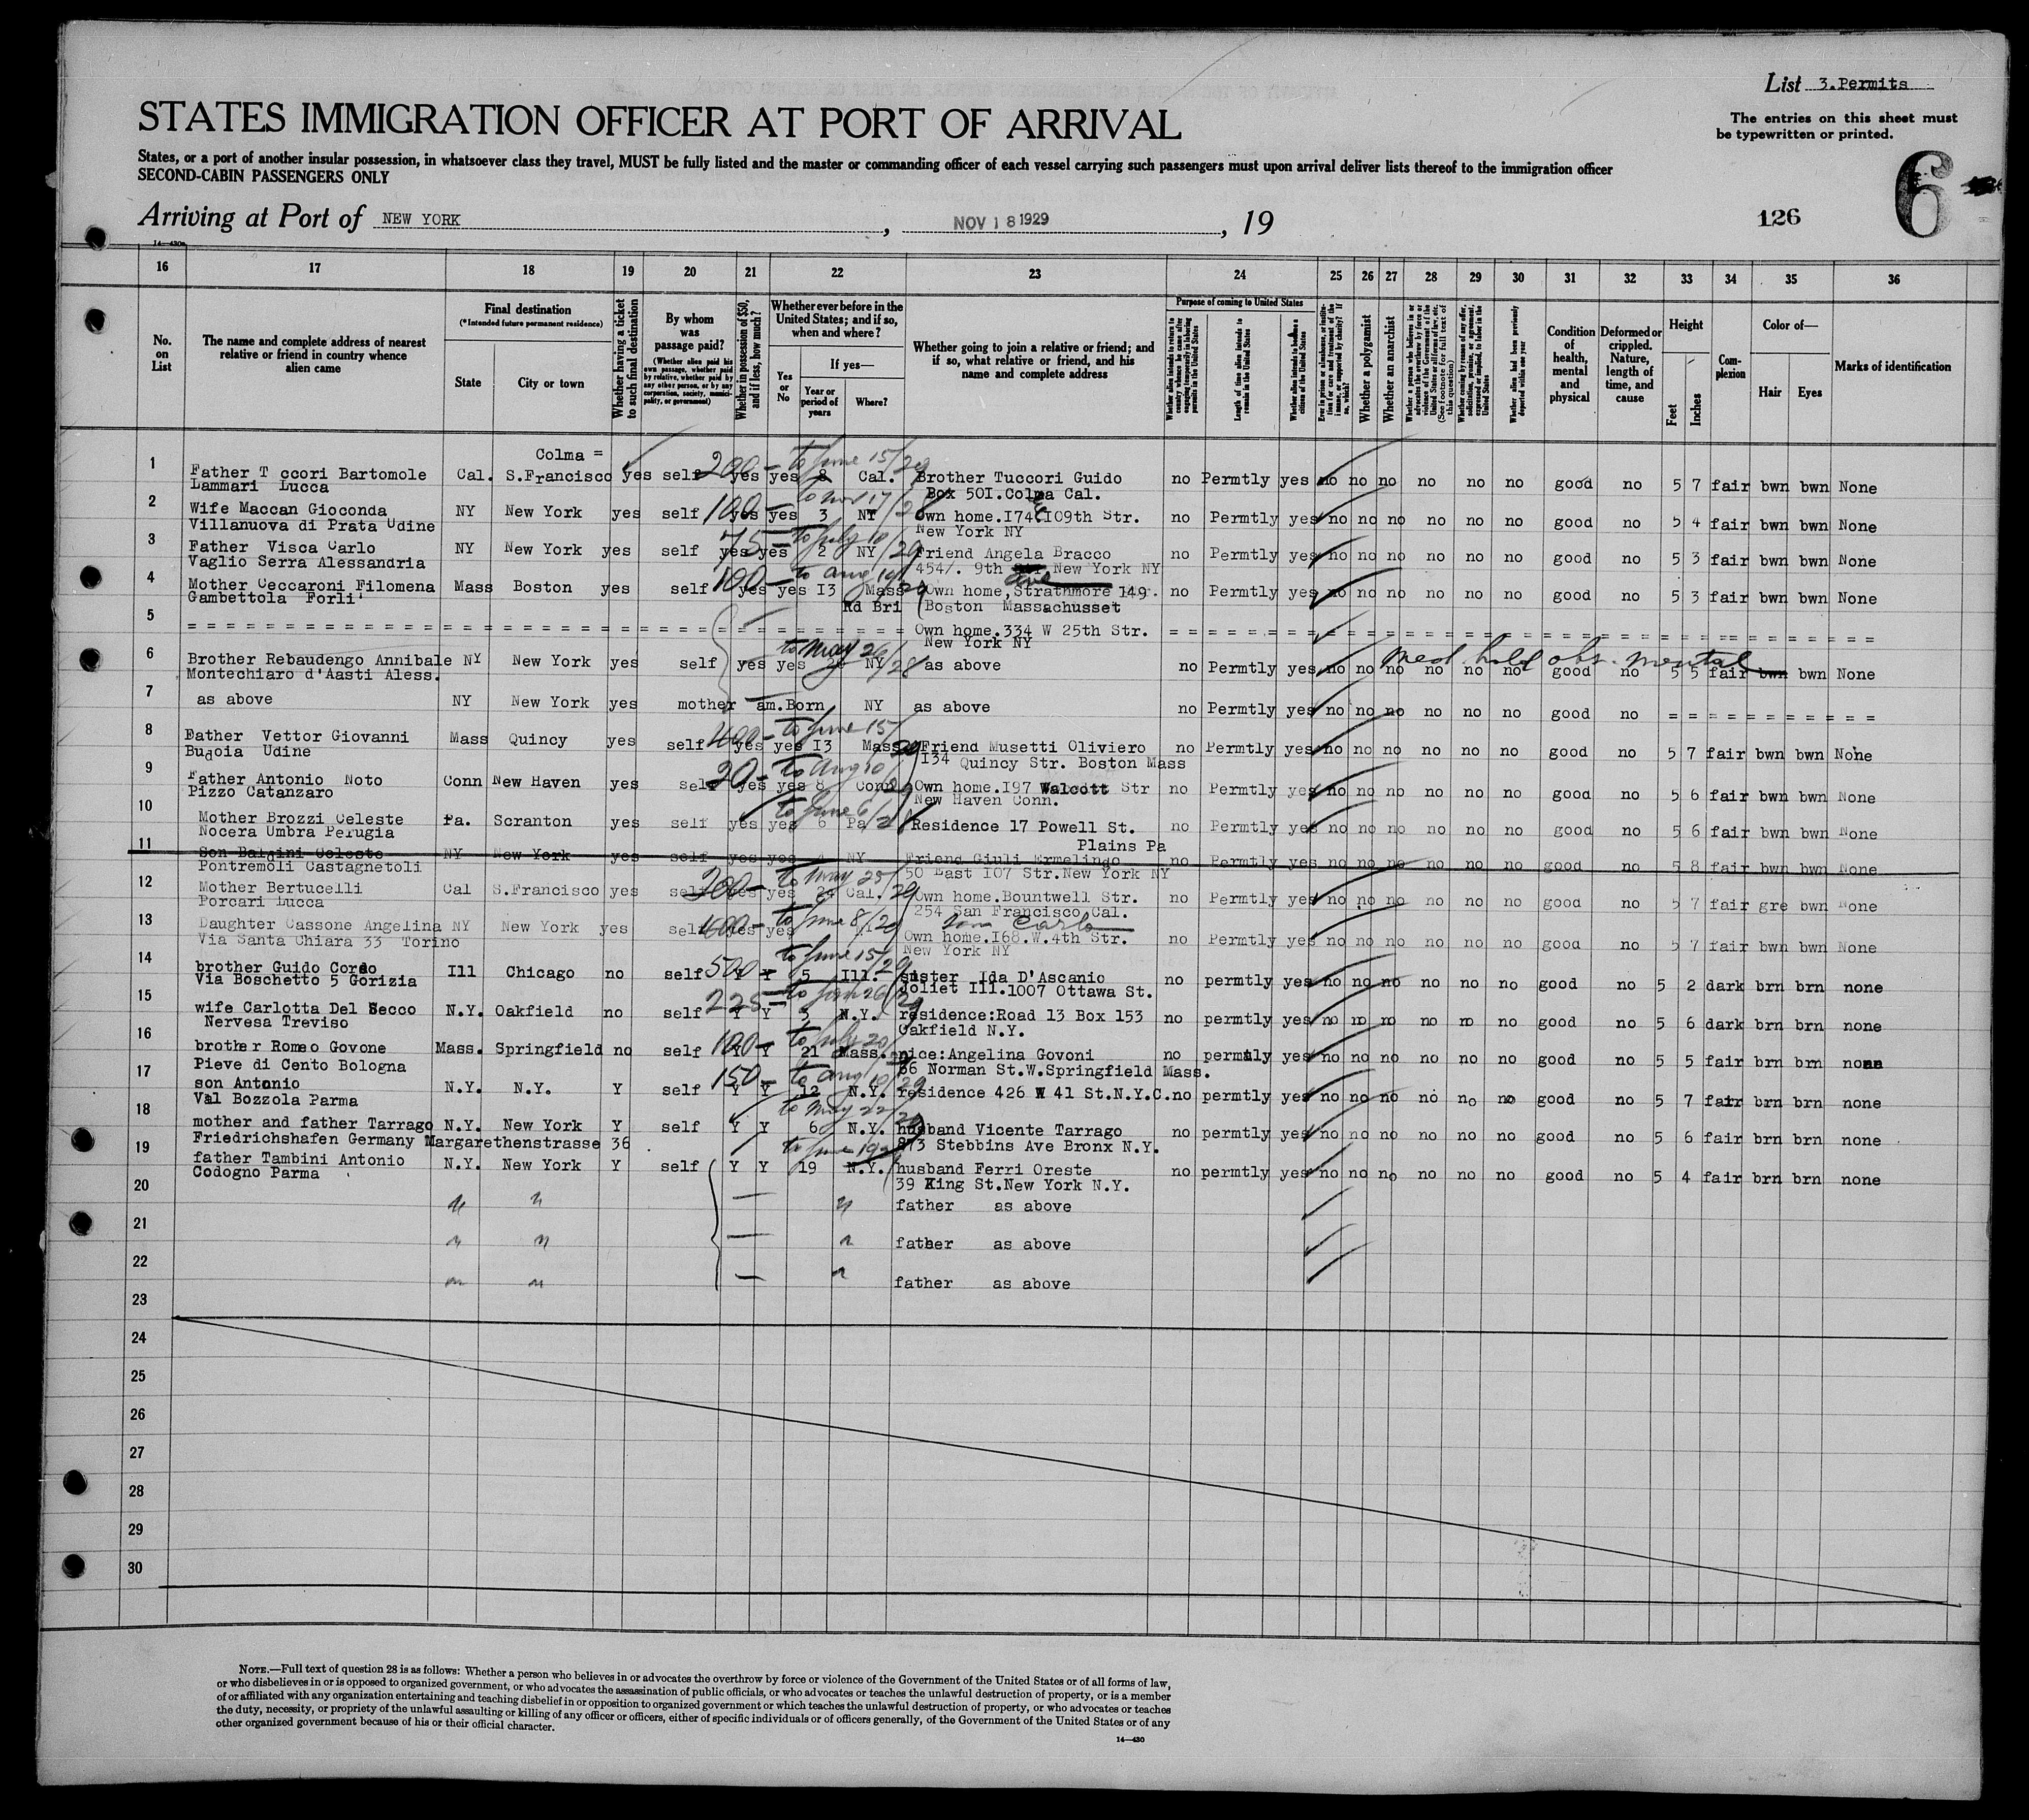 List 3.Permits
STATES IMMIGRATION OFFICER AT PORT OF ARRIVAL
The entries on this sheet must
be typewritten or printed.
States, or a port of another insular possession, in whatsoever class they travel, MUST be fully listed and the master or commanding officer of each vessel carrying such passengers must upon arrival deliver lists thereof to the immigration officer
SECOND-CABIN PASSENGERS ONLY
6
Arriving at Port of NEW YORK, NOV 18 1929, 19
126
14—430
16 17 18 19 20 21 22 23 24 25 26 27 28 29 30 31 32 33 34 35 36
No. on List
The name and complete address of nearest relative or friend in country whence alien came
Final destination
(*Intended future permanent residence)
State
City or town
Whether having a ticket to such final destination
By whom was passage paid?
(Whether alien paid his own passage, whether paid by relative, whether paid by any other person, or by any corporation, society, municipality, or government)
Whether in possession of $50, and if less, how much?
Whether ever before in the United States; and if so, when and where?
Yes or No
If yes—
Year or period of years
Where?
Whether going to join a relative or friend; and if so, what relative or friend, and his name and complete address
Purpose of coming to United States
Length of time alien intends to remain in the United States
Whether alien intends to become a citizen of the United States
Whether a polygamist
Whether an anarchist
Condition of health, mental and physical
Deformed or crippled. Nature, length of time, and cause
Height
Feet
Inches
Complexion
Color of—
Hair
Eyes
Marks of identification
Colma =
1 Father T ccori Bartomole Cal. S.Francisco yes self 200- yes yes 8 to June 15/29 Cal. Brother Tuccori Guido no Permtly yes no no no no no no good no 5 7 fair bwn bwn None
Lammari Lucca Box 50I.Colma Cal.
2 Wife Maccan Gioconda NY New York yes self 100- yes yes 3 to Nov 17/28 NY Own home.I74 E I09th Str. no Permtly yes no no no no no no good no 5 4 fair bwn bwn None
Villanuova di Prata Udine New York NY
3 Father Visca Carlo NY New York yes self 75- yes yes 2 to July 10/29 NY Friend Angela Bracco no Permtly yes no no no no no no good no 5 3 fair bwn bwn None
Vaglio Serra Alessandria 454/. 9th Ave New York NY
4 Mother Ceccaroni Filomena Mass Boston yes self 100- yes yes I3 to Aug 19/29 Mass Own home,Strathmore 149. no Permtly yes no no no no no no good no 5 3 fair bwn bwn None
Gambettola Forli' Rd Bri Boston Massachusset
5 = = = = = = Own home.334 W 25th Str. = = = = = =
New York NY
6 Brother Rebaudengo Annibale NY New York yes self yes yes to May 26/28 NY as above no Permtly yes no no no no no no good no 5 5 fair bwn bwn None
Montechiaro d'Aasti Aless. med hold obs. mental
7 as above NY New York yes mother am.Born NY as above no Permtly yes no no no no no no good no = = = = = =
8 Father Vettor Giovanni Mass Quincy yes self 400- yes yes I3 to June 15/29 Mass Friend Musetti Oliviero no Permtly yes no no no no no no good no 5 7 fair bwn bwn None
Budoia Udine I34 Quincy Str. Boston Mass
9 Father Antonio Noto Conn New Haven yes self 20- yes yes 8 to Aug 10/29 Conn Own home.I97 Walcott Str no Permtly yes no no no no no no good no 5 6 fair bwn bwn None
Pizzo Catanzaro New Haven Conn.
10 Mother Brozzi Celeste Pa. Scranton yes self yes yes 6 to June 6/28 Pa Residence 17 Powell St. no Permtly yes no no no no no no good no 5 6 fair bwn bwn None
Nocera Umbra Perugia Plains Pa
11 Son Baldini Celeste NY New York yes self yes yes 4 NY Friend Giuli Ermelingo no Permtly yes no no no no no no good no 5 8 fair bwn bwn None
Pontremoli Castagnetoli 50 East I07 Str.New York NY
12 Mother Bertucelli Cal S.Francisco yes self 200- yes yes 24 to May 25/29 Cal. Own home.Bountwell Str. no Permtly yes no no no no no no good no 5 7 fair gre bwn None
Porcari Lucca 254 San Francisco Cal.
13 Daughter Cassone Angelina NY New York yes self 600- yes yes to June 8/29 Son Carlo Own home.I68.W.4th Str. no Permtly yes no no no no no no good no 5 7 fair bwn bwn None
Via Santa Chiara 33 Torino New York NY
14 brother Guido Cordo Ill Chicago no self 500- Y Y 5 to June 15/29 Ill. sister Ida D'Ascanio no permtly yes no no no no no no good no 5 2 dark brn brn none
Via Boschetto 5 Gorizia Joliet Ill.1007 Ottawa St.
15 wife Carlotta Del Secco N.Y. Oakfield no self 225- Y Y 5 N.Y. residence:Road 13 Box 153 no permtly yes no no no no no no good no 5 6 dark brn brn none
Nervesa Treviso Oakfield N.Y.
16 brother Romeo Govone Mass. Springfield no self 100- Y Y 21 to July 20/29 Mass. nice:Angelina Govoni no permtly yes no no no no no no good no 5 5 fair brn brn none
Pieve di Cento Bologna 66 Norman St.W.Springfield Mass.
17 son Antonio N.Y. N.Y. Y self 150- Y Y 12 to Aug 10/29 N.Y. residence 426 W 41 St.N.Y.C. no permtly yes no no no no no no good no 5 7 fair brn brn none
Val Bozzola Parma
18 mother and father Tarrago N.Y. New York Y self Y Y 6 to May 22/29 N.Y. husband Vicente Tarrago no permtly yes no no no no no no good no 5 6 fair brn brn none
Friedrichshafen Germany Margarethenstrasse 36 873 Stebbins Ave Bronx N.Y.
19 father Tambini Antonio N.Y. New York Y self Y Y 19 N.Y. husband Ferri Oreste no permtly yes no no no no no no good no 5 4 fair brn brn none
Codogno Parma 39 King St.New York N.Y.
20 " " — " father as above
21 " " — " father as above
22 " " — " father as above
23
24
25
26
27
28
29
30
NOTE.—Full text of question 28 is as follows: Whether a person who believes in or advocates the overthrow by force or violence of the Government of the United States or of all forms of law,
or who disbelieves in or is opposed to organized government, or who advocates the assassination of public officials, or who advocates or teaches the unlawful destruction of property, or is a member
of or affiliated with any organization entertaining and teaching disbelief in or opposition to organized government or which teaches the unlawful destruction of property, or who advocates or teaches
the duty, necessity, or propriety of the unlawful assaulting or killing of any officer or officers, either of specific individuals or of officers generally, of the Government of the United States or of any
other organized government because of his or their official character.
14—430